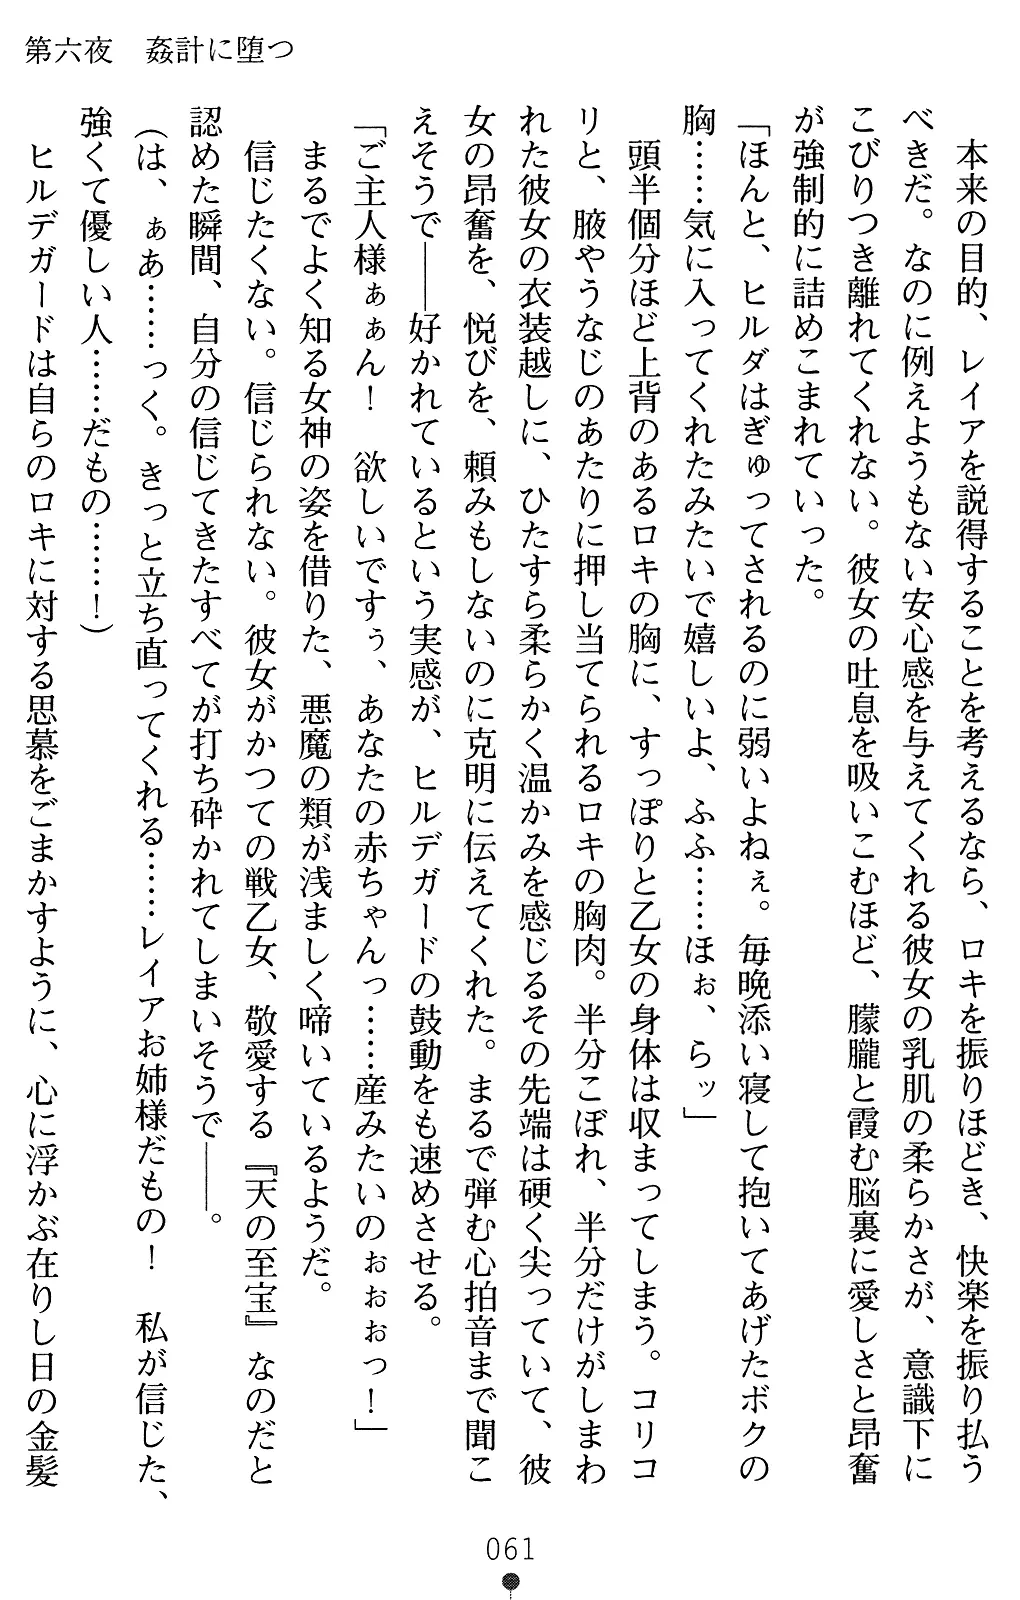 第六夜　姦計に堕つ
　本来の目的、レイアを説得することを考えるなら、ロキを振りほどき、快楽を振り払う
べきだ。なのに例えようもない安心感を与えてくれる彼女の乳肌の柔らかさが、意識下に
こびりつき離れてくれない。彼女の吐息を吸いこむほど、朦朧と霞む脳裏に愛しさと昂奮
が強制的に詰めこまれていった。
「ほんと、ヒルダはぎゅってされるのに弱いよねぇ。毎晩添い寝して抱いてあげたボクの
胸……気に入ってくれたみたいで嬉しいよ、ふふ……ほぉ、らッ」
　頭半個分ほど上背のあるロキの胸に、すっぽりと乙女の身体は収まってしまう。コリコ
リと、腋やうなじのあたりに押し当てられるロキの胸肉。半分こぼれ、半分だけがしまわ
れた彼女の衣装越しに、ひたすら柔らかく温かみを感じるその先端は硬く尖っていて、彼
女の昂奮を、悦びを、頼みもしないのに克明に伝えてくれた。まるで弾む心拍音まで聞こ
えそうで――好かれているという実感が、ヒルデガードの鼓動をも速めさせる。
「ご主人様ぁぁん！　欲しいですぅ、あなたの赤ちゃんっ……産みたいのぉぉぉっ！」
　まるでよく知る女神の姿を借りた、悪魔の類が浅ましく啼いているようだ。
　信じたくない。信じられない。彼女がかつての戦乙女、敬愛する『天の至宝』なのだと
認めた瞬間、自分の信じてきたすべてが打ち砕かれてしまいそうで――。
（は、ぁあ……っく。きっと立ち直ってくれる……レイアお姉様だもの！　私が信じた、
強くて優しい人……だもの……！）
　ヒルデガードは自らのロキに対する思慕をごまかすように、心に浮かぶ在りし日の金髪
061